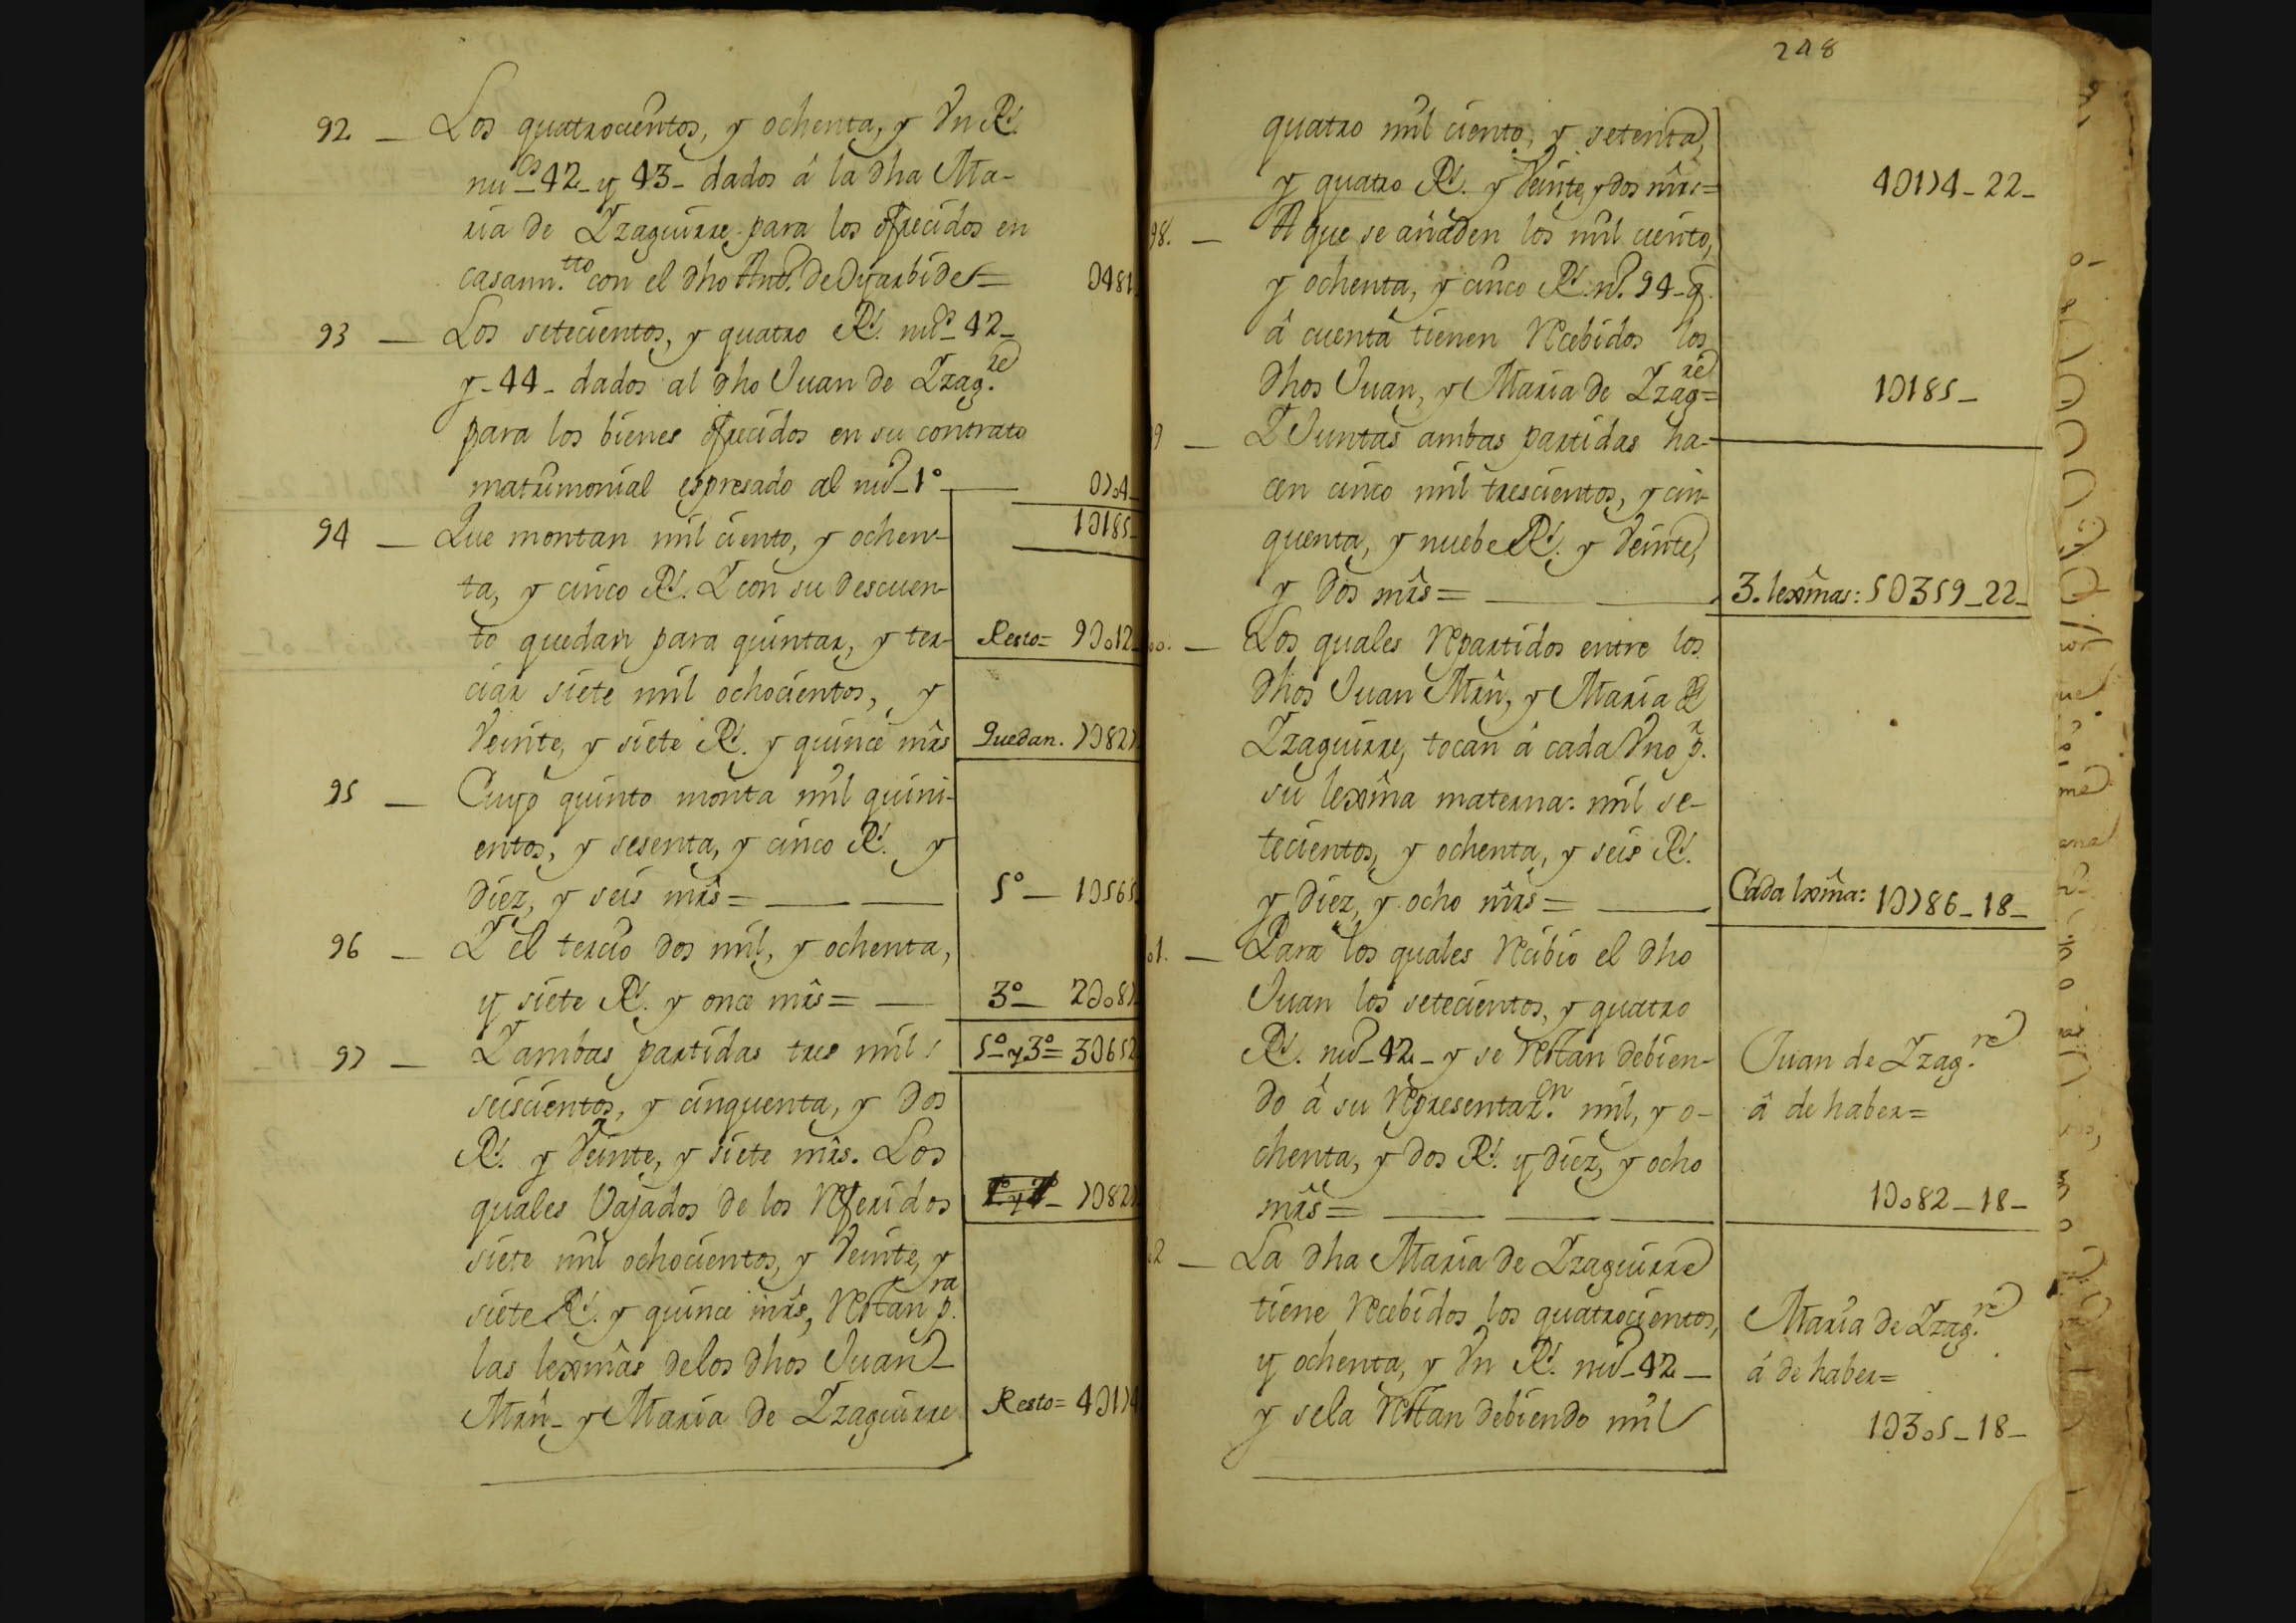 92 _ Los quatrocientos, y ochenta, y Vn Rˢ.
nuᵒˢ_42_y 43_ dados â la dha Ma-
ria de Yzaguirre para los ofrecidos en
casam.ᵗᵗᵒ con el dho Antᵒ. de Oyarbide = 0481_
93 _ Los setecientos, y quatro Rˢ. nuᵒ_42_
y_44_ dados al dho Juan de Yzag.ʳᵉ
para los bienes ofrecidos en su contrato
matrimonial espresado al nuᵒ_1º_ 0704_
94 _ Que montan mil ciento, y ochen- 1185_
ta, y cinco Rˢ. Y con su descuen-
to quedan para quintar, y ter- Resto= 9012_
ciar siete mil ochocientos, y
Veinte, y siete Rˢ. y quince mrŝ Quedan. 7827
95 _ Cuyo quinto monta mil quini-
entos, y sesenta, y cinco Rˢ. y
diez, y seis mrŝ= 5º _ 1565
96 _ Y el tercio dos mil, y ochenta,
y siete Rˢ. y once mrŝ= _ 3º_ 2087
97 _ Y ambas partidas tres mil 5º_y3º= 3652
seiscientos, y cinquenta, y dos
Rˢ. y Veinte, y siete mrŝ. Los
quales Vajados de los Referidos 7827
siete mil ochocientos, y Veinte, y
siete Rˢ. y quince mrŝ, Restan p.ʳᵃ
las lexm̂as delos dhos Juan
Mrn̂_ y Maria de Yzaguirre Resto= 4174
248
quatro mil ciento, y setenta,
y quatro Rˢ. y Veinte, y dos mrŝ= 4174_22_
98. _ A que se añaden los mil ciento,
y ochenta, y cinco Rˢ. nᵒ. 94_q.
â cuenta tienen Recebidos los
dhos Juan, y Maria de Yzagʳᵉ= 1185_
9 _ Y Juntas ambas partidas ha-
cen cinco mil trescientos, y cin-
quenta, y nuebe Rˢ. y Veinte,
y dos mrŝ= 3. lexm̂as: 5359_22_
00. _ Los quales Repartidos entre los
dhos Juan Mrn̂, y Maria de
Yzaguirre, tocan â cada Vno p.ʳ
su lexm̂a materna: mil se-
tecientos, y ochenta, y seis Rˢ.
y diez, y ocho mrŝ= Cada lxm̂a: 1786_18_
01. _ Para los quales Recibio el dho
Juan los setecientos, y quatro
Rˢ. nuᵒ_42_y se Restan debien- Juan de Yzag.ʳᵉ
do â su Representaz.ᵒⁿ mil, y o- â de haber=
chenta, y dos Rˢ. y diez, y ocho
mrŝ= 1082_18_
02 _ La dha Maria de Yzaguirre
tiene Recebidos los quatrocientos, Maria de Yzag.ʳᵉ
y ochenta, y Vn Rˢ. nuᵒ_42_ â de haber=
y sela Restan debiendo mil 1305_18_